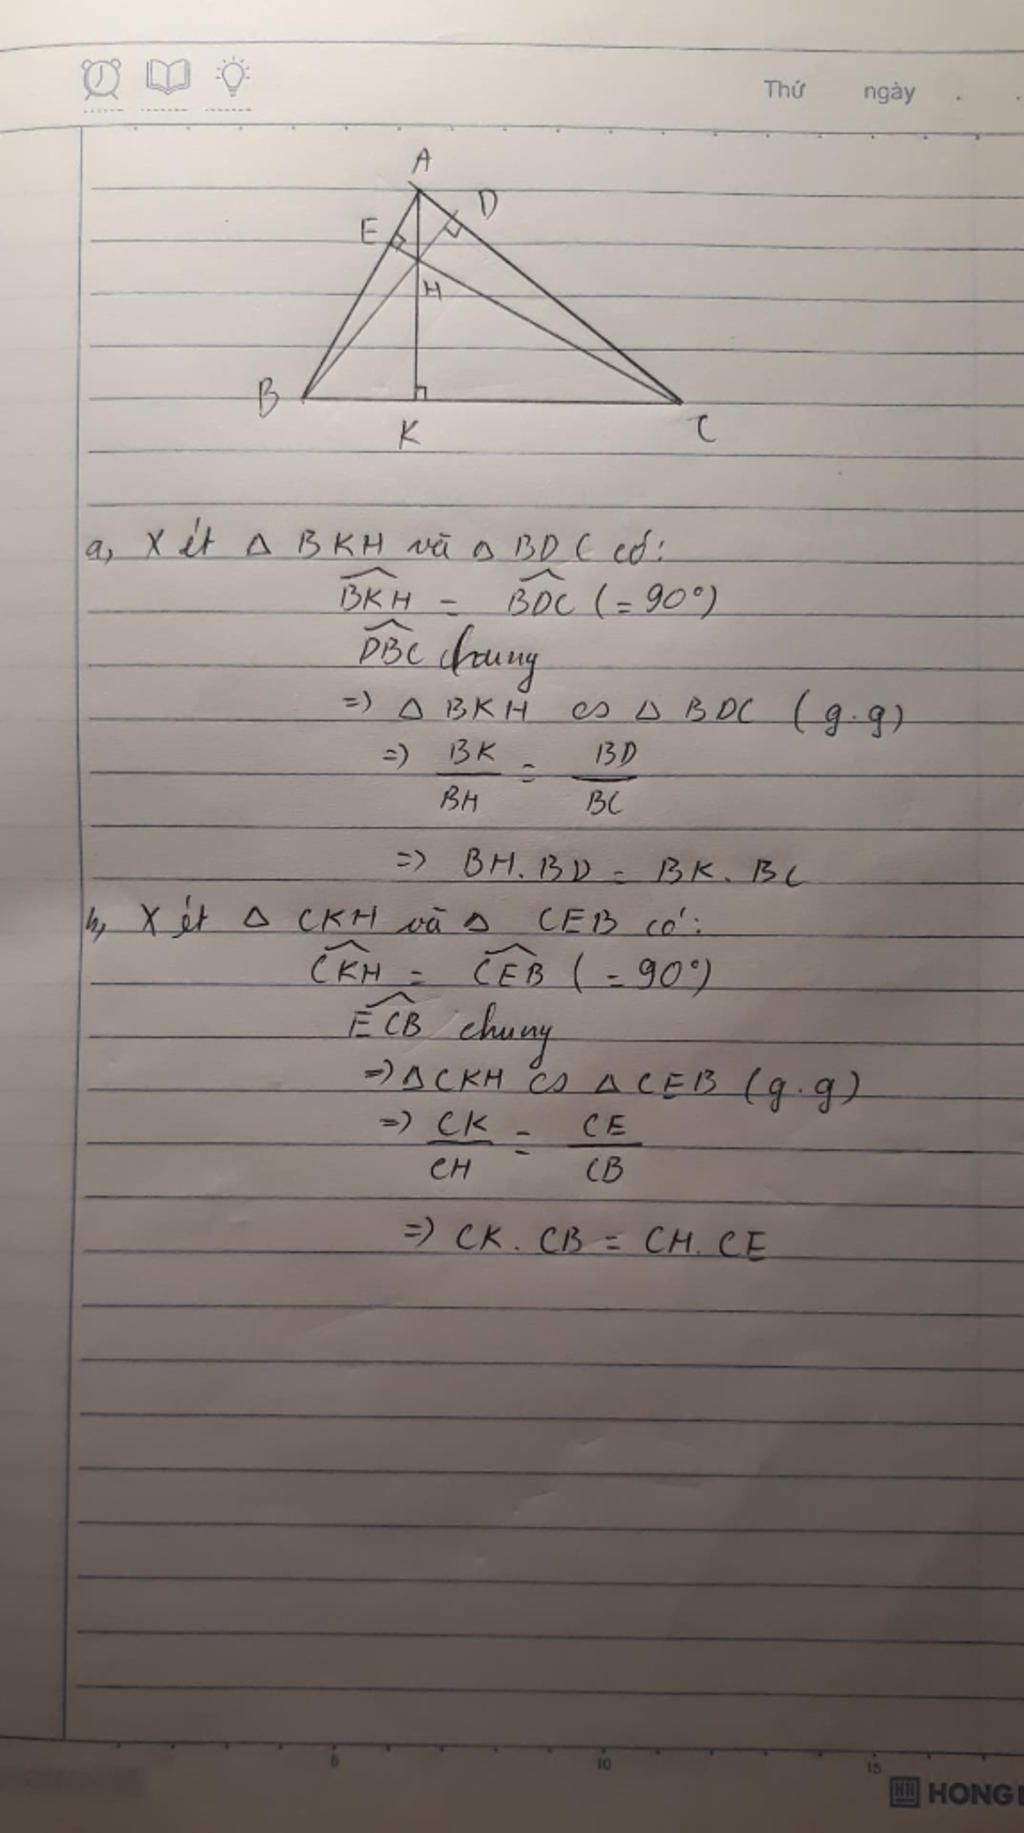 Thứ ngày
A
D
E
H
B
K
C
a, Xét Δ BKH và Δ BDC có:
\widehat{BKH} = \widehat{BDC} (= 90°)
\widehat{DBC} chung
=) Δ BKH ∽ Δ BDC (g.g)
=) \frac{BK}{BH} = \frac{BD}{BC}
=> BH. BD = BK. BC
b, Xét Δ CKH và Δ CEB có:
\widehat{CKH} = \widehat{CEB} (= 90°)
\widehat{ECB} chung
=) Δ CKH ∽ Δ CEB (g.g)
=) \frac{CK}{CH} = \frac{CE}{CB}
=) CK. CB = CH. CE
5 10 15
HONG